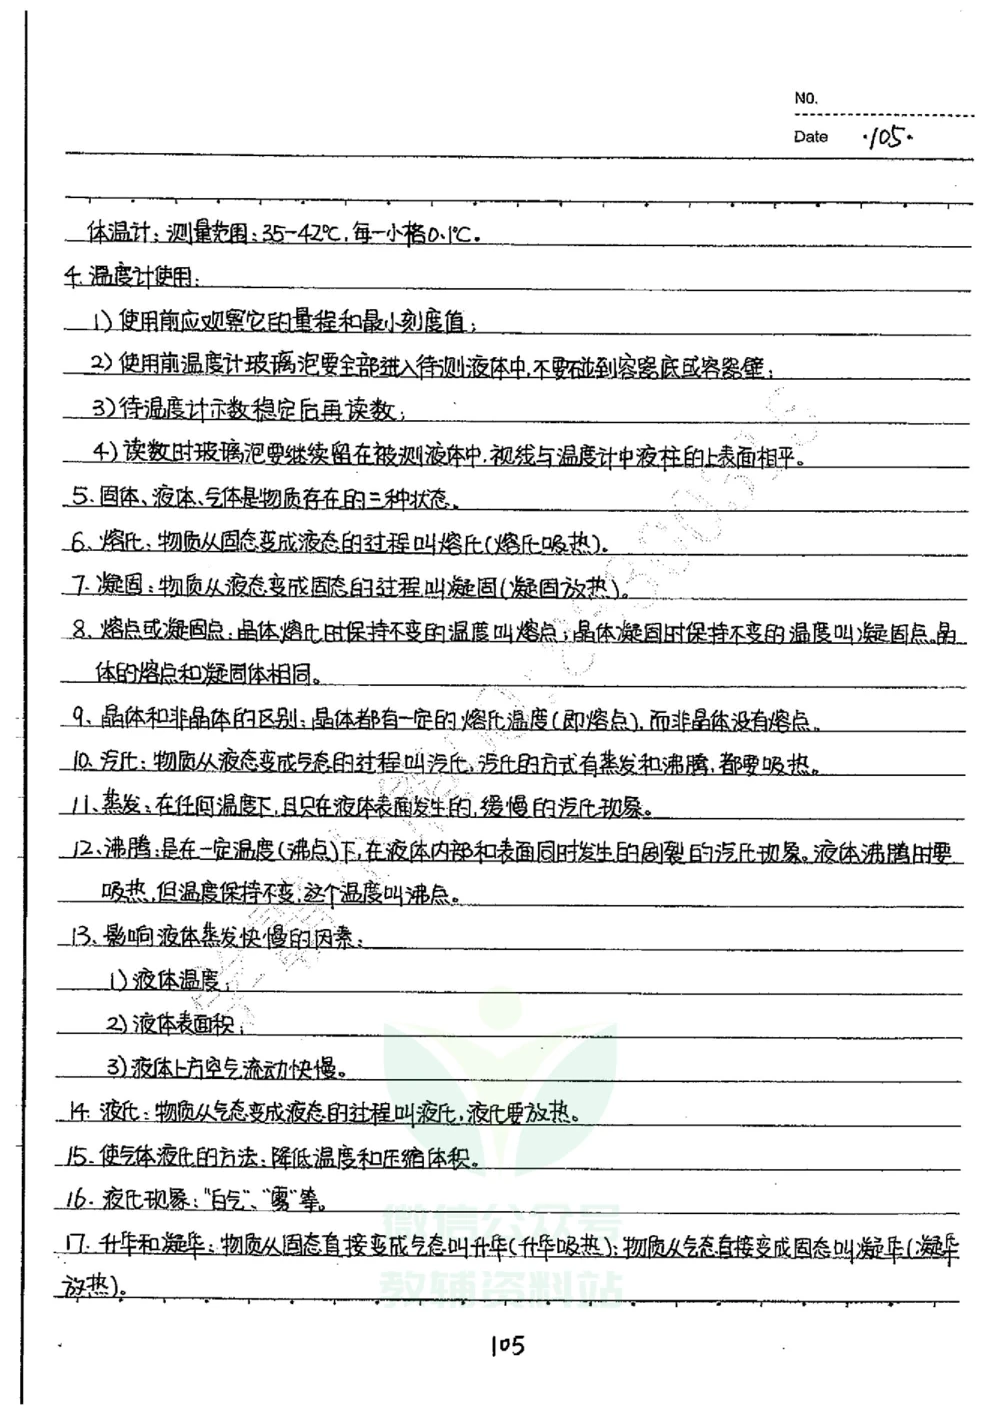 NO.
Date ·105·
体温计：测量范围：35-42℃，每一小格0.1℃。
4. 温度计使用：
1）使用前应观察它的量程和最小刻度值；
2）使用前温度计玻璃泡要全部进入待测液体中，不要碰到容器底或容器壁；
3）待温度计示数稳定后再读数；
4）读数时玻璃泡要继续留在被测液体中，视线与温度计中液柱的上表面相平。
5. 固体、液体、气体是物质存在的三种状态。
6. 熔化：物质从固态变成液态的过程叫熔化（熔化吸热）。
7. 凝固：物质从液态变成固态的过程叫凝固（凝固放热）。
8. 熔点或凝固点：晶体熔化时保持不变的温度叫熔点；晶体凝固时保持不变的温度叫凝固点。晶
体的熔点和凝固体相同。
9、晶体和非晶体的区别：晶体都有一定的熔化温度（即熔点），而非晶体没有熔点。
10. 汽化：物质从液态变成气态的过程叫汽化，汽化的方式有蒸发和沸腾，都要吸热。
11、蒸发：在任何温度下，且只在液体表面发生的，缓慢的汽化现象。
12、沸腾：是在一定温度（沸点）下，在液体内部和表面同时发生的剧裂的汽化现象。液体沸腾时要
吸热，但温度保持不变，这个温度叫沸点。
13、影响液体蒸发快慢的因素：
1）液体温度；
2）液体表面积；
3）液体上方空气流动快慢。
14. 液化：物质从气态变成液态的过程叫液化，液化要放热。
15. 使气体液化的方法：降低温度和压缩体积。
16. 液化现象：“白气”、“雾”等。
17. 升华和凝华：物质从固态直接变成气态叫升华（升华吸热）；物质从气态直接变成固态叫凝华（凝华
放热）。
微信公众号
教辅资料站
105